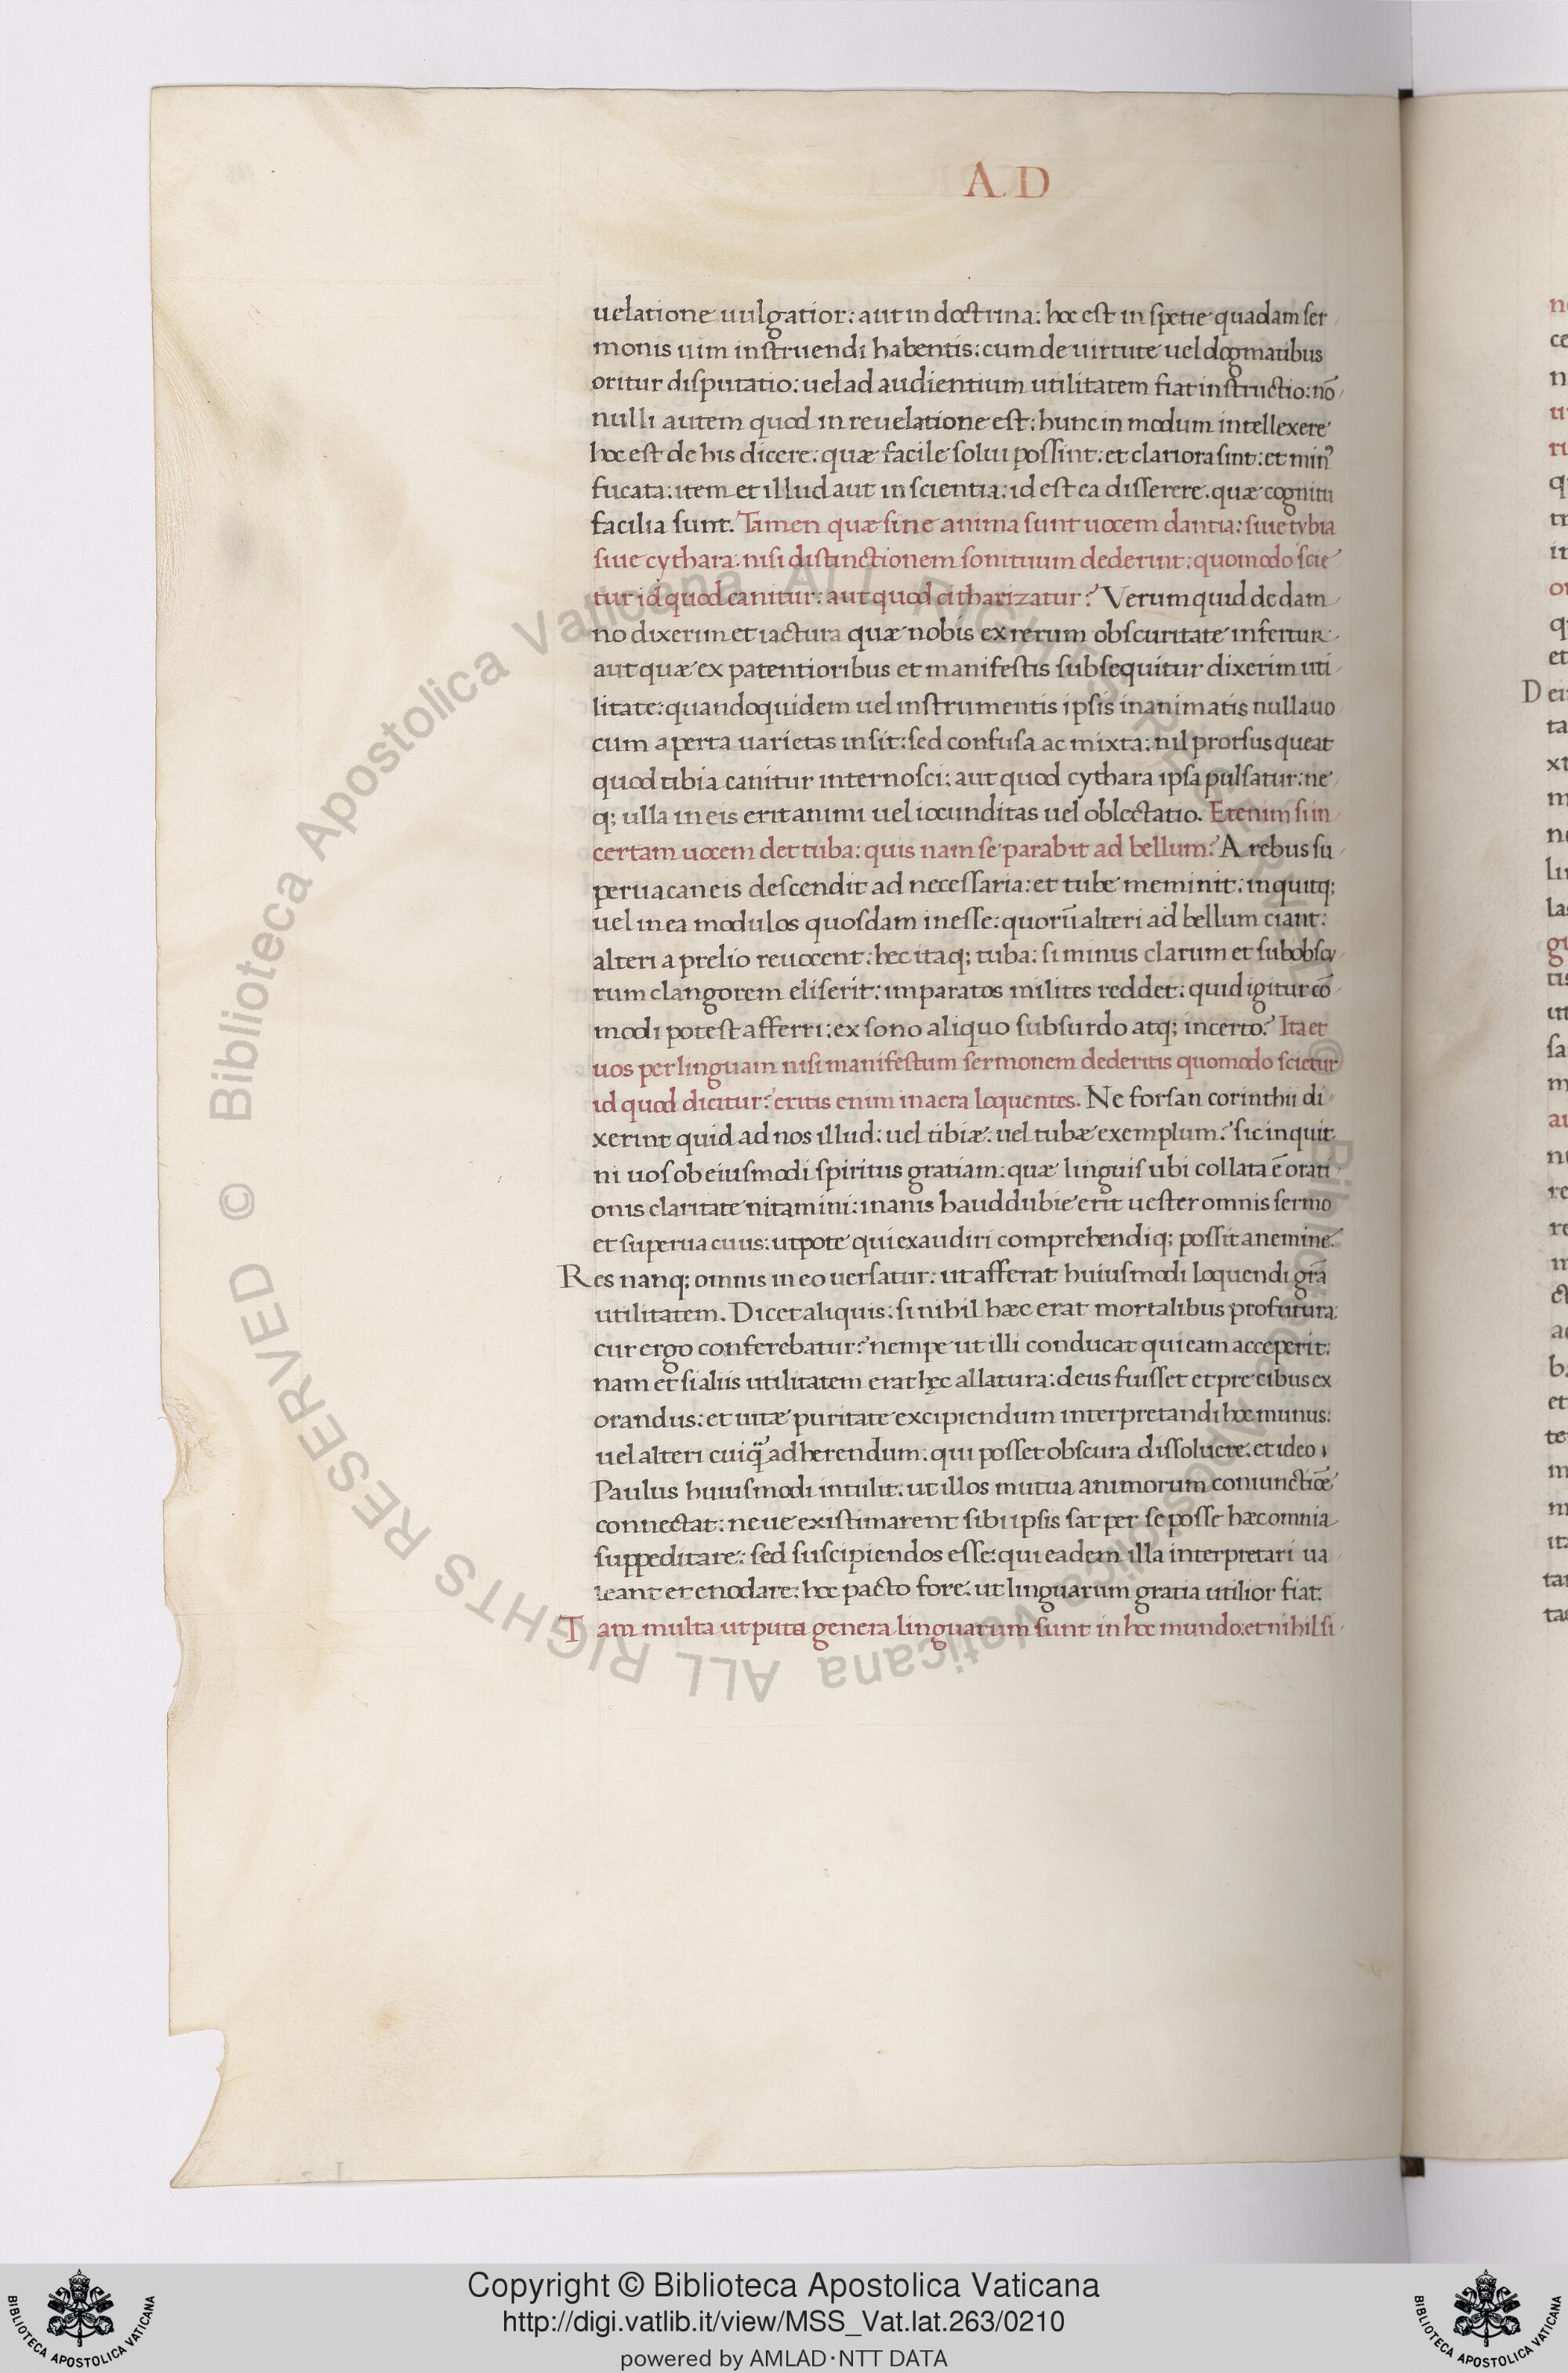 A D
uelatione uulgatior: aut in doctrina: hoc est in spetie quadam ser
monis uim instruendi habentis: cum de uirtute uel dogmatibus
oritur disputatio: uel ad audientium utilitatem fiat instructio: nō
nulli autem quod in reuelatione est: hunc in modum intellexere
hoc est de his dicere: quæ facile solui possint: et clariora sint: et minꝰ
fucata: item et illud aut in scientia: id est ea disserere. quæ cognitu
facilia sunt. Tamen quæ sine anima sunt uocem dantia: siue tybia
siue cythara. nisi distinctionem sonituum dederint: quomodo scie
tur id quod canitur: aut quod citharizatur? Verum quid de dam
no dixerim et iactura quæ nobis ex rerum obscuritate infertur
aut quæ ex patentioribus et manifestis subsequitur dixerim uti
litate: quandoquidem uel instrumentis ipsis inanimatis nulla uo
cum aperta uarietas insit: sed confusa ac mixta: nil prorsus queat
quod tibia canitur internosci: aut quod cythara ipsa pulsatur: ne
q; ulla in eis erit animi uel iocunditas uel oblectatio. Etenim si in
certam uocem det tuba: quis nam se parabit ad bellum? A rebus su
peruacaneis descendit ad necessaria: et tube meminit: inquitq;
uel in ea modulos quosdam inesse: quorū alteri ad bellum ciant:
alteri a prelio reuocent: hec itaq; tuba: si minus clarum et subobscu
rum clangorem eliserit: imparatos milites reddet: quid igitur cō
modi potest afferri: ex sono aliquo subsurdo atq; incerto? Ita et
uos per linguam nisi manifestum sermonem dederitis quomodo scietur
id quod dicitur? eritis enim in aera loquentes. Ne forsan corinthii di
xerint quid ad nos illud: uel tibiæ: uel tubæ exemplum? sic inquit
ni uos ob eiusmodi spiritus gratiam: quæ linguis ubi collata ē orati
onis claritate nitamini: inanis haud dubie erit uester omnis sermo
et superua cuus: utpote qui exaudiri comprehendiq; possit a nemine.
Res nanq; omnis in eo uersatur: ut afferat huiusmodi loquendi grā
utilitatem. Dicet aliquis: si nihil hæc erat mortalibus profutura:
cur ergo conferebatur? nempe ut illi conducat qui eam acceperit:
nam et si aliis utilitatem erat hęc allatura: deus fuisset et precibus ex
orandus: et uitæ puritate excipiendum interpretandi hoc munus:
uel alteri cuiq̄ adherendum: qui posset obscura dissoluere. et ideo
Paulus huiusmodi intulit: ut illos mutua animorum coniunctiōe
connectat: neue existimarent sibi ipsis sat per se posse hæc omnia
suppeditare: sed suscipiendos esse: qui eadem illa interpretari ua
leant et enodare: hoc pacto fore. ut linguarum gratia utilior fiat.
Tam multa ut puta genera linguarum sunt in hoc mundo: et nihil si
Copyright © Biblioteca Apostolica Vaticana
http://digi.vatlib.it/view/MSS_Vat.lat.263/0210
powered by AMLAD·NTT DATA
© Biblioteca Apostolica Vaticana ALL RIGHTS RESERVED
© Biblioteca Apostolica Vaticana ALL RIGHTS RESERVED
BIBLIOTECA APOSTOLICA VATICANA
BIBLIOTECA APOSTOLICA VATICANA